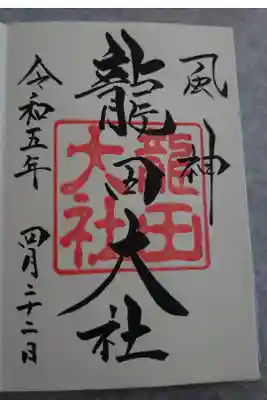 風神
龍田大社
龍田大社
令和五年
四月二十二日